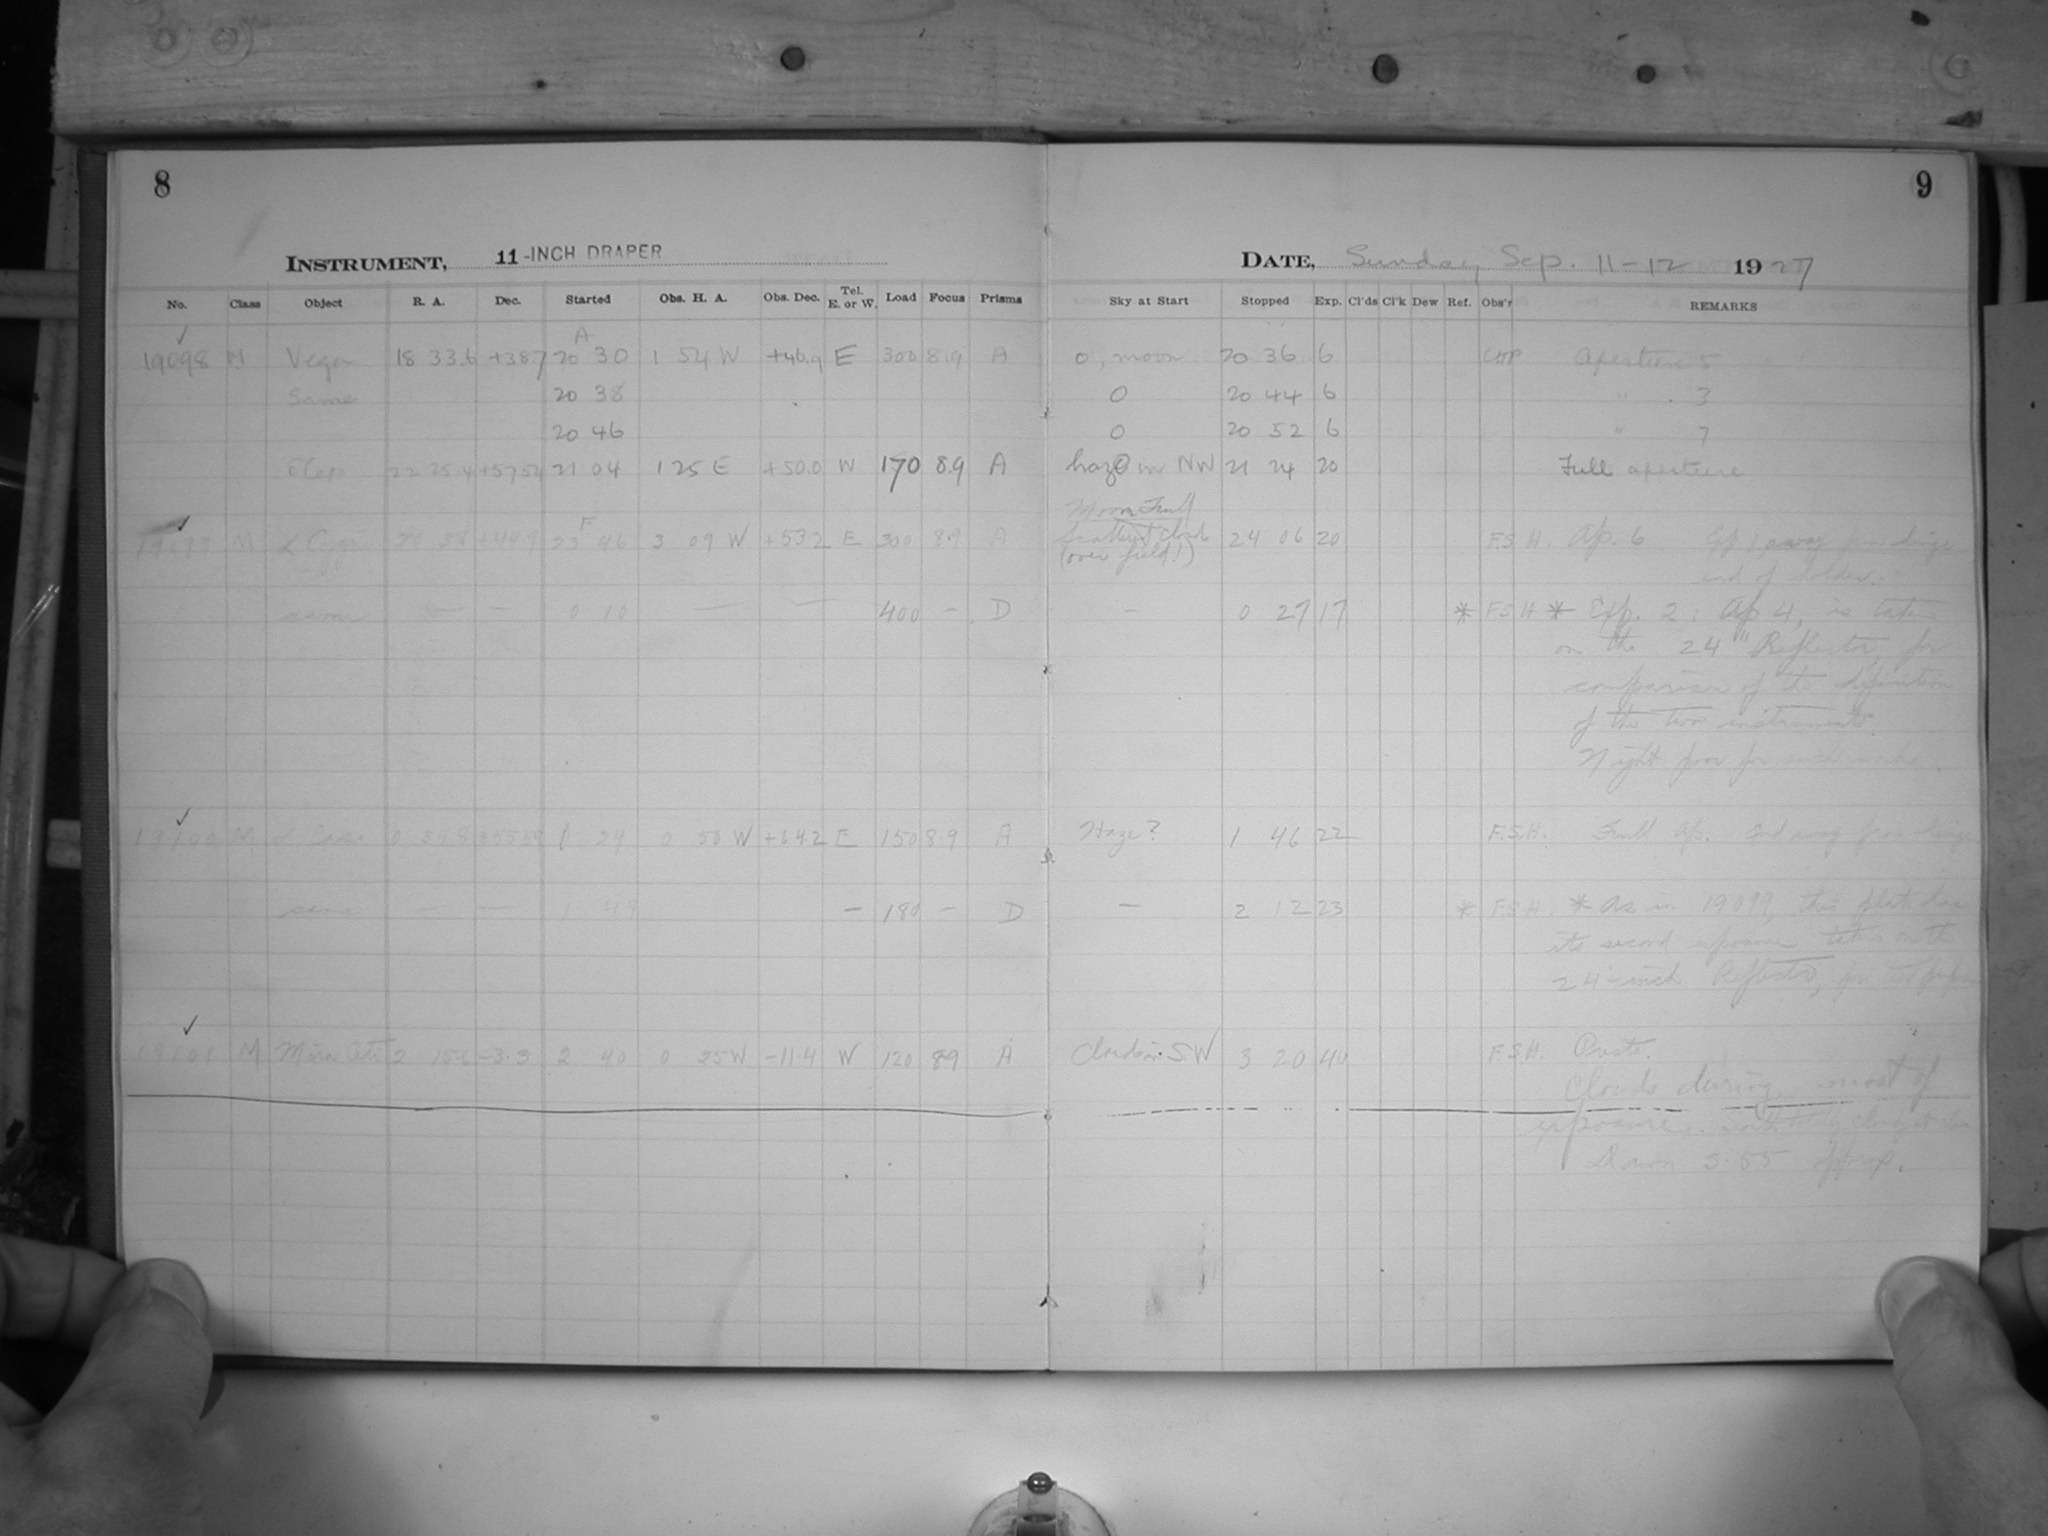 8
9
INSTRUMENT, 11-INCH DRAPER
DATE, Sunday, Sep. 11-12 1927
No. Class Object R. A. Dec. Started Obs. H. A. Obs. Dec. Tel. E. or W. Load Focus Prisms Sky at Start Stopped Exp. Cl'ds Cl'k Dew Ref. Obs'r REMARKS
✓ A
19098 M Vega 18 33.6 +38.7 20 30 1 54 W +46.9 E 300 8.9 A 0, moon 20 36 6 Aperture 5
Same 20 38 0 20 44 6 " 3
20 46 0 20 52 6 " 7
δ Cep 22 25.4 +57 54 21 04 1 25 E +50.0 W 170 8.9 A haze in NW 21 24 20 Full aperture
✓ F Moon Full
19099 M α Cygni 20 38 +44.9 23 46 3 09 W +53.2 E 300 8.9 A Scattered Clouds 24 06 20 F.S.H. Ap. 6 Exp 1 away from hinge
(over field!) end of holder.
same — — 0 10 — — 400 - D - 0 27 17 * F.S.H * Exp. 2: Ap 4, is taken
on the 24" Reflector, for
comparison of the definition
of the two instruments.
Night poor for such work.
✓
19100 M α Cass 0 34.8 1 24 0 50 W +64.2 E 150 8.9 A Haze? 1 46 22 F.S.H. Full Ap. End away from hinge
same — — 1 49 - 180 - D - 2 12 23 * F.S.H. * As in 19099, this plate has
its second exposure taken on the
24-inch Reflector, for
✓
19101 M Mira Ceti 2 15.6 -3.3 2 40 0 25 W -11.4 W 120 8.9 A Clouds in S.W 3 20 40 F.S.H.
Clouds during most of
exposure.
Dawn 3.55 approx.